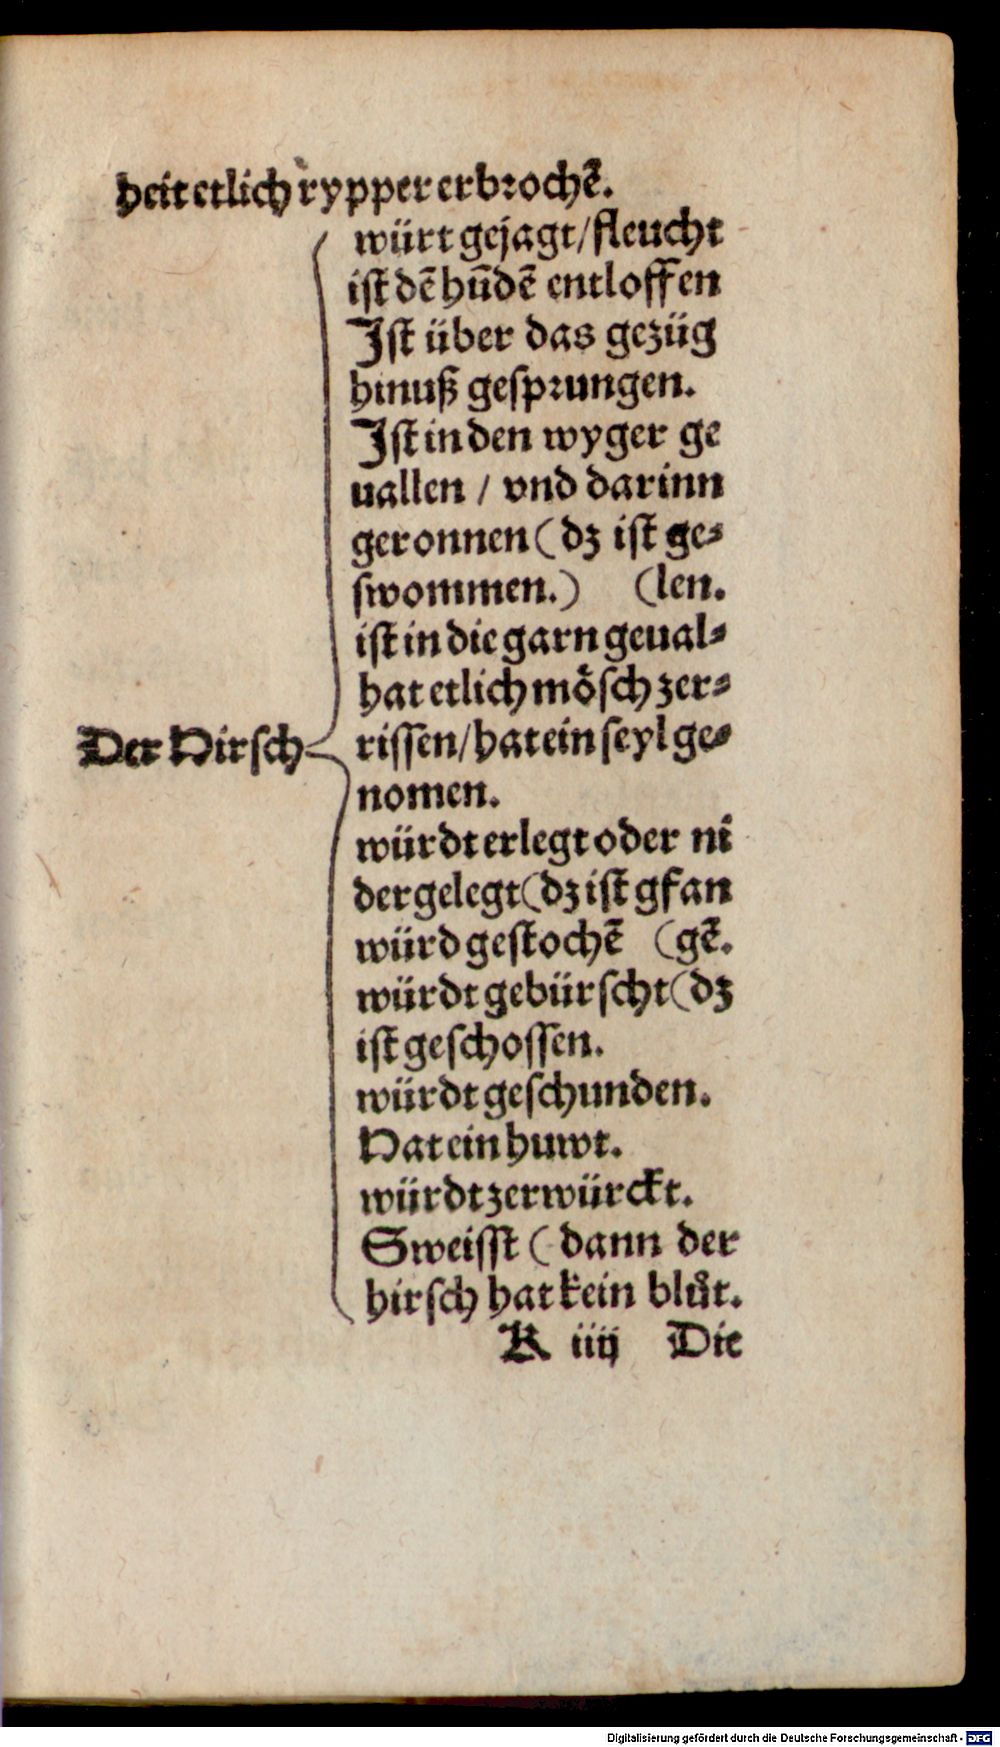 heit etlich rypper erbrochẽ.
würt gejagt/fleucht
ist dẽ hũdẽ entloffen
Jst über das gezüg
hinuß gesprungen.
Jst in den wyger ge
uallen / vnd darinn
geronnen (dz ist ge⸗
swommen.) (len.
ist in die garn geual⸗
hat etlich mösch zer⸗
Der Hirsch rissen/hat ein seyl ge⸗
nomen.
würdt erlegt oder ni
der gelegt (dz ist gfan
würd gestochẽ (gẽ.
würdt gebürscht (dz
ist geschossen.
würdt geschunden.
Hat ein huwt.
würdt zerwürckt.
Sweisst (dann der
hirsch hat kein blůt.
K iiij Die
Digitalisierung gefördert durch die Deutsche Forschungsgemeinschaft - DFG